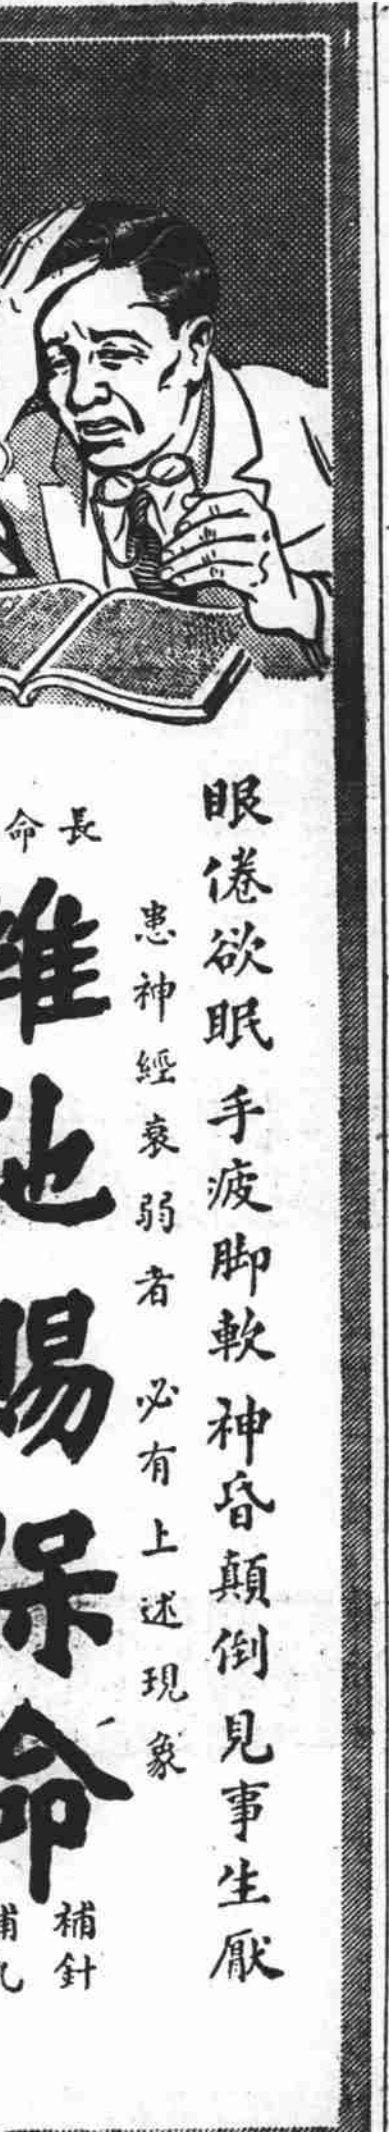 眼倦欲眠 手疲脚軟 神昏顛倒 見事生厭
患神經衰弱者 必有上述現象
長命
維他賜保命
補針